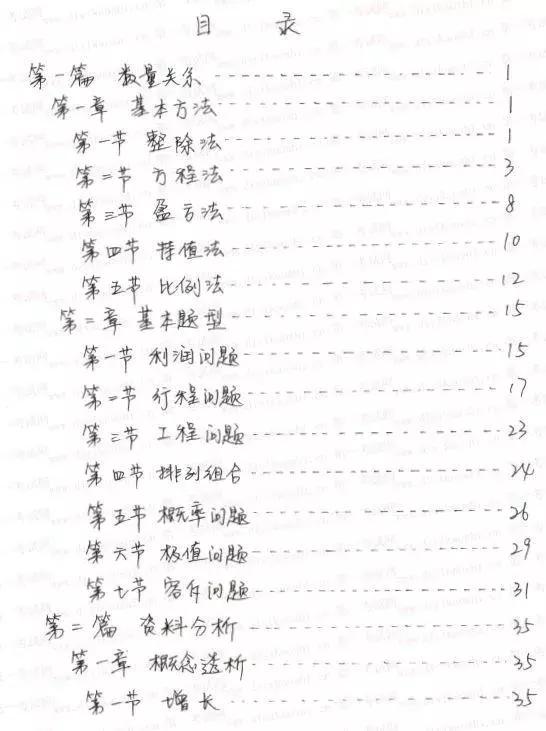 目 录
第一篇 数量关系 1
第一章 基本方法 1
第一节 整除法 1
第二节 方程法 3
第三节 盈亏法 8
第四节 特值法 10
第五节 比例法 12
第二章 基本题型 15
第一节 利润问题 15
第二节 行程问题 17
第三节 工程问题 23
第四节 排列组合 24
第五节 概率问题 26
第六节 极值问题 29
第七节 容斥问题 31
第二篇 资料分析 35
第一章 概念透析 35
第一节 增长 35